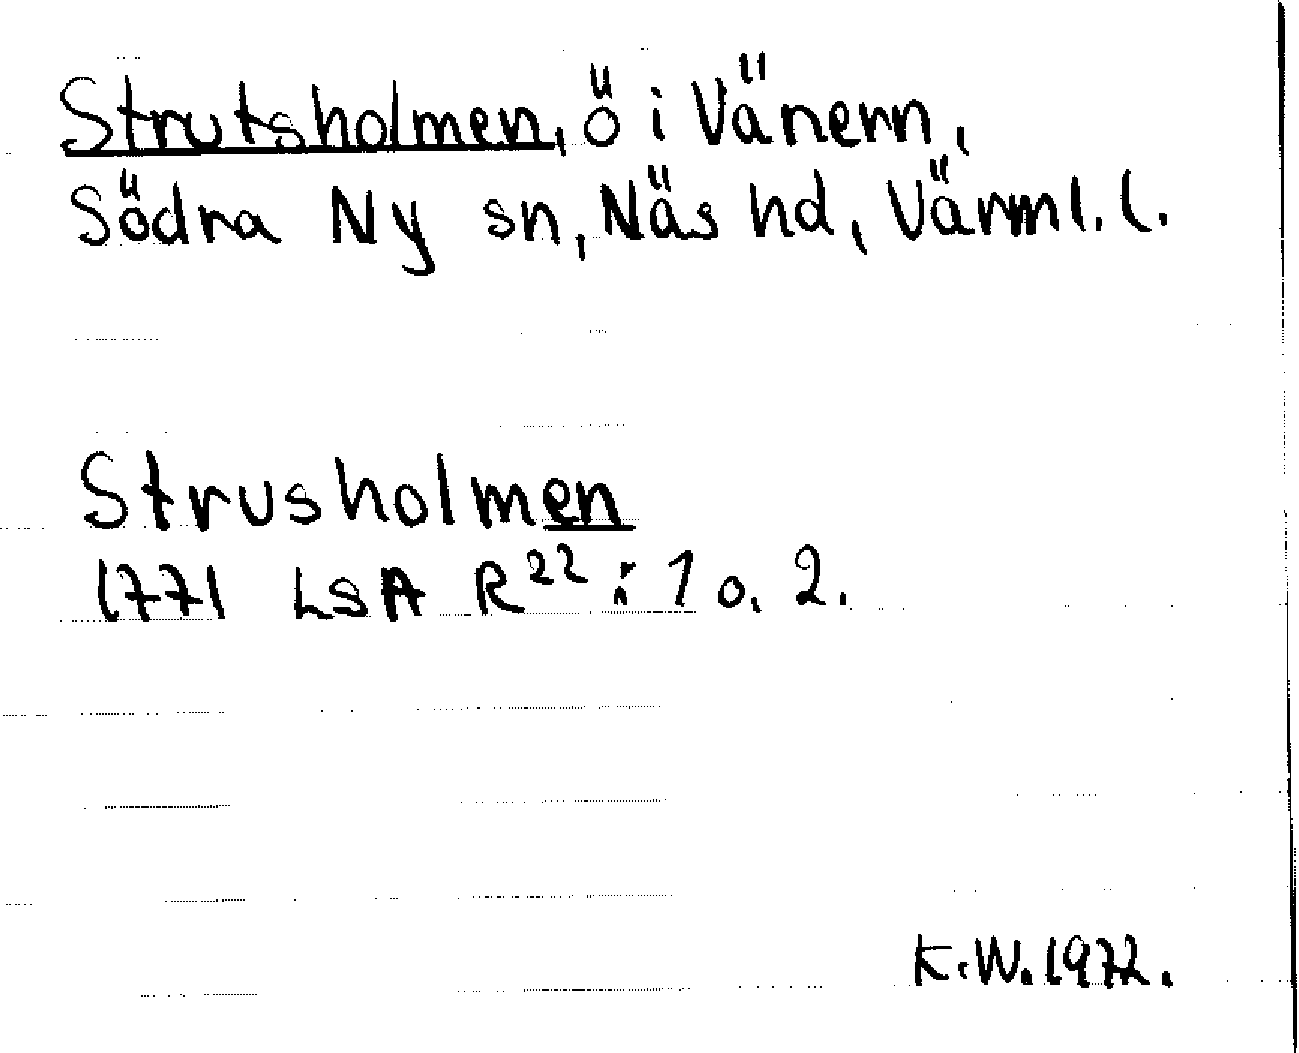 Strutsholmen, ö i Vänern,
Södra Ny sn, Näs hd, Värml. l.
Strusholmen
1771 LSA R22:1 o. 2.
K.W. 1972.